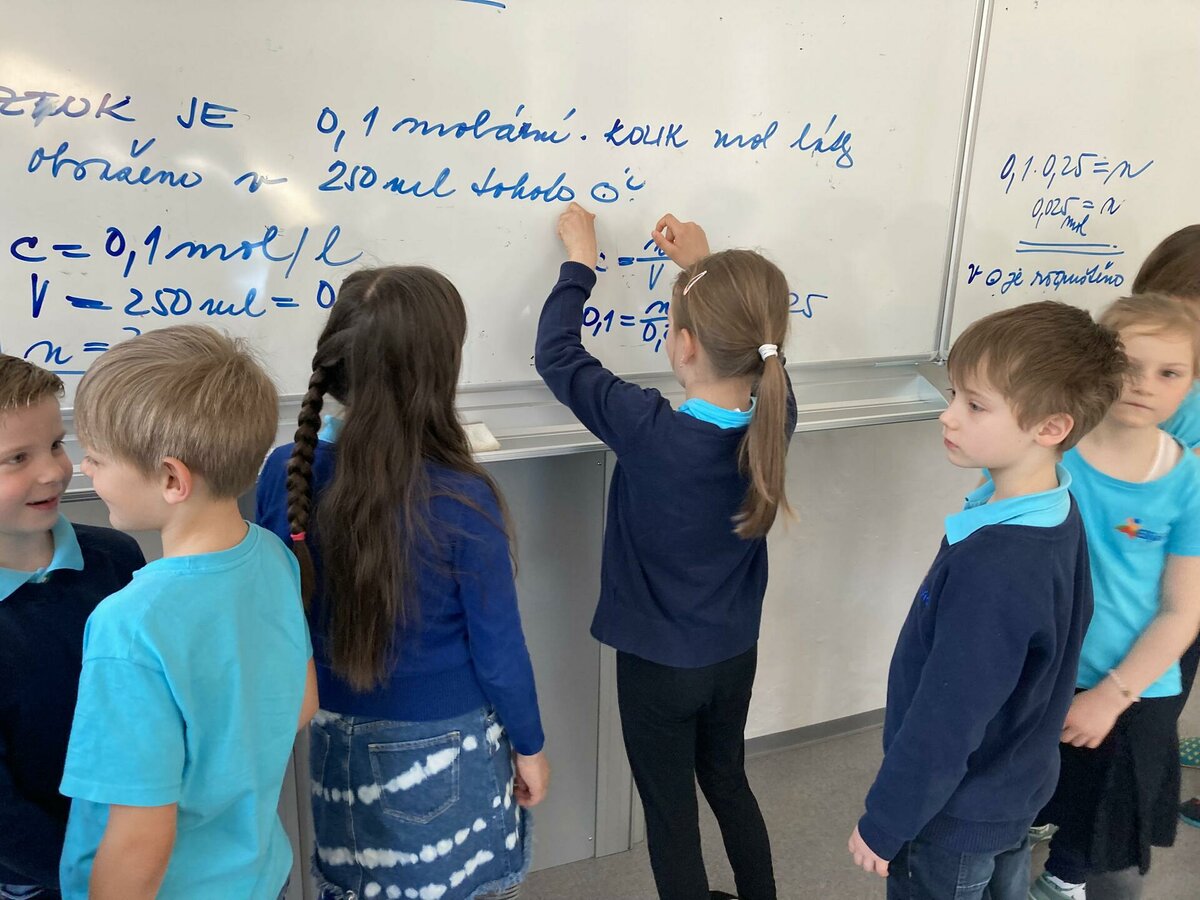 ZTOK JE 0,1 molární. KOLIK mol látky
obsaženo v 250 ml tohoto ⊙?
c = 0,1 mol/l
V = 250 ml = 0
n =
= n/V
0,1 = n/0,
25
0,1 · 0,25 = n
0,025 = n
mol
v ⊙ je rozpuštěno